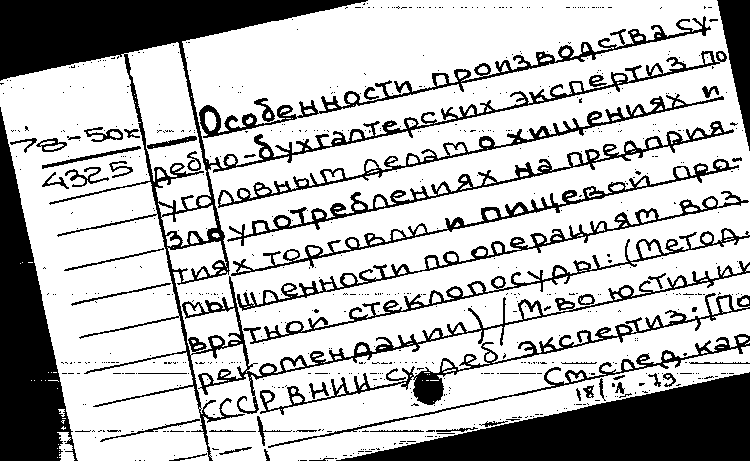 Особенности производства су-
78-50к дебно-бухгалтерских экспертиз по
4325 уголовным делам о хищениях и
злоупотреблениях на предприя-
тиях торговли и пищевой про-
мышленности по операциям воз
вратной стеклопосуды: (Метод.
рекомендации) / М-во юстиции
СССР, ВНИИ судеб. экспертиз; [По
См. след. кар
18/I-79